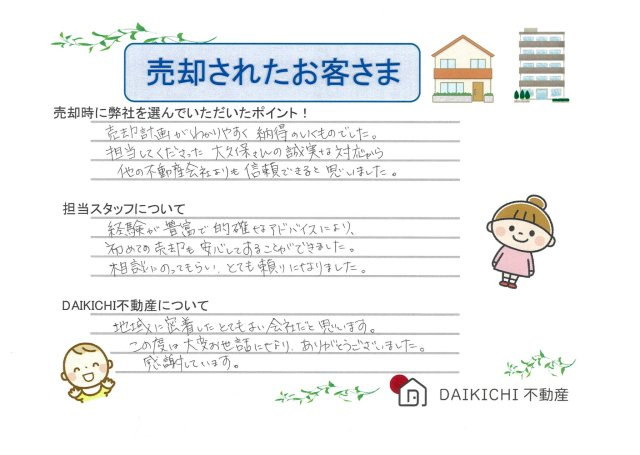 売却されたお客さま
売却時に弊社を選んでいただいたポイント！
売却計画がわかりやすく納得のいくものでした。
担当してくださった大久保さんの誠実な対応から
他の不動産会社よりも信頼できると思いました。
担当スタッフについて
経験が豊富で的確なアドバイスにより、
初めての売却も安心してすることができました。
相談にのってもらい、とても頼りになりました。
DAIKICHI不動産について
地域に密着したとてもよい会社だと思います。
この度は大変お世話になり、ありがとうございました。
感謝しています。
DAIKICHI 不動産